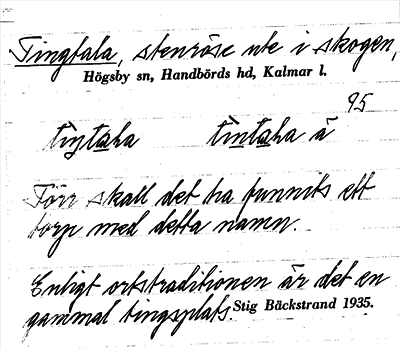 Tingtala, stenröse ute i skogen,
Högsby sn, Handbörds hd, Kalmar l.
95
tiŋtaha tintaha ä
Förr skall det ha funnits ett
torp med detta namn.
Enligt ortstraditionen är det en
gammal tingsplats. Stig Bäckstrand 1935.